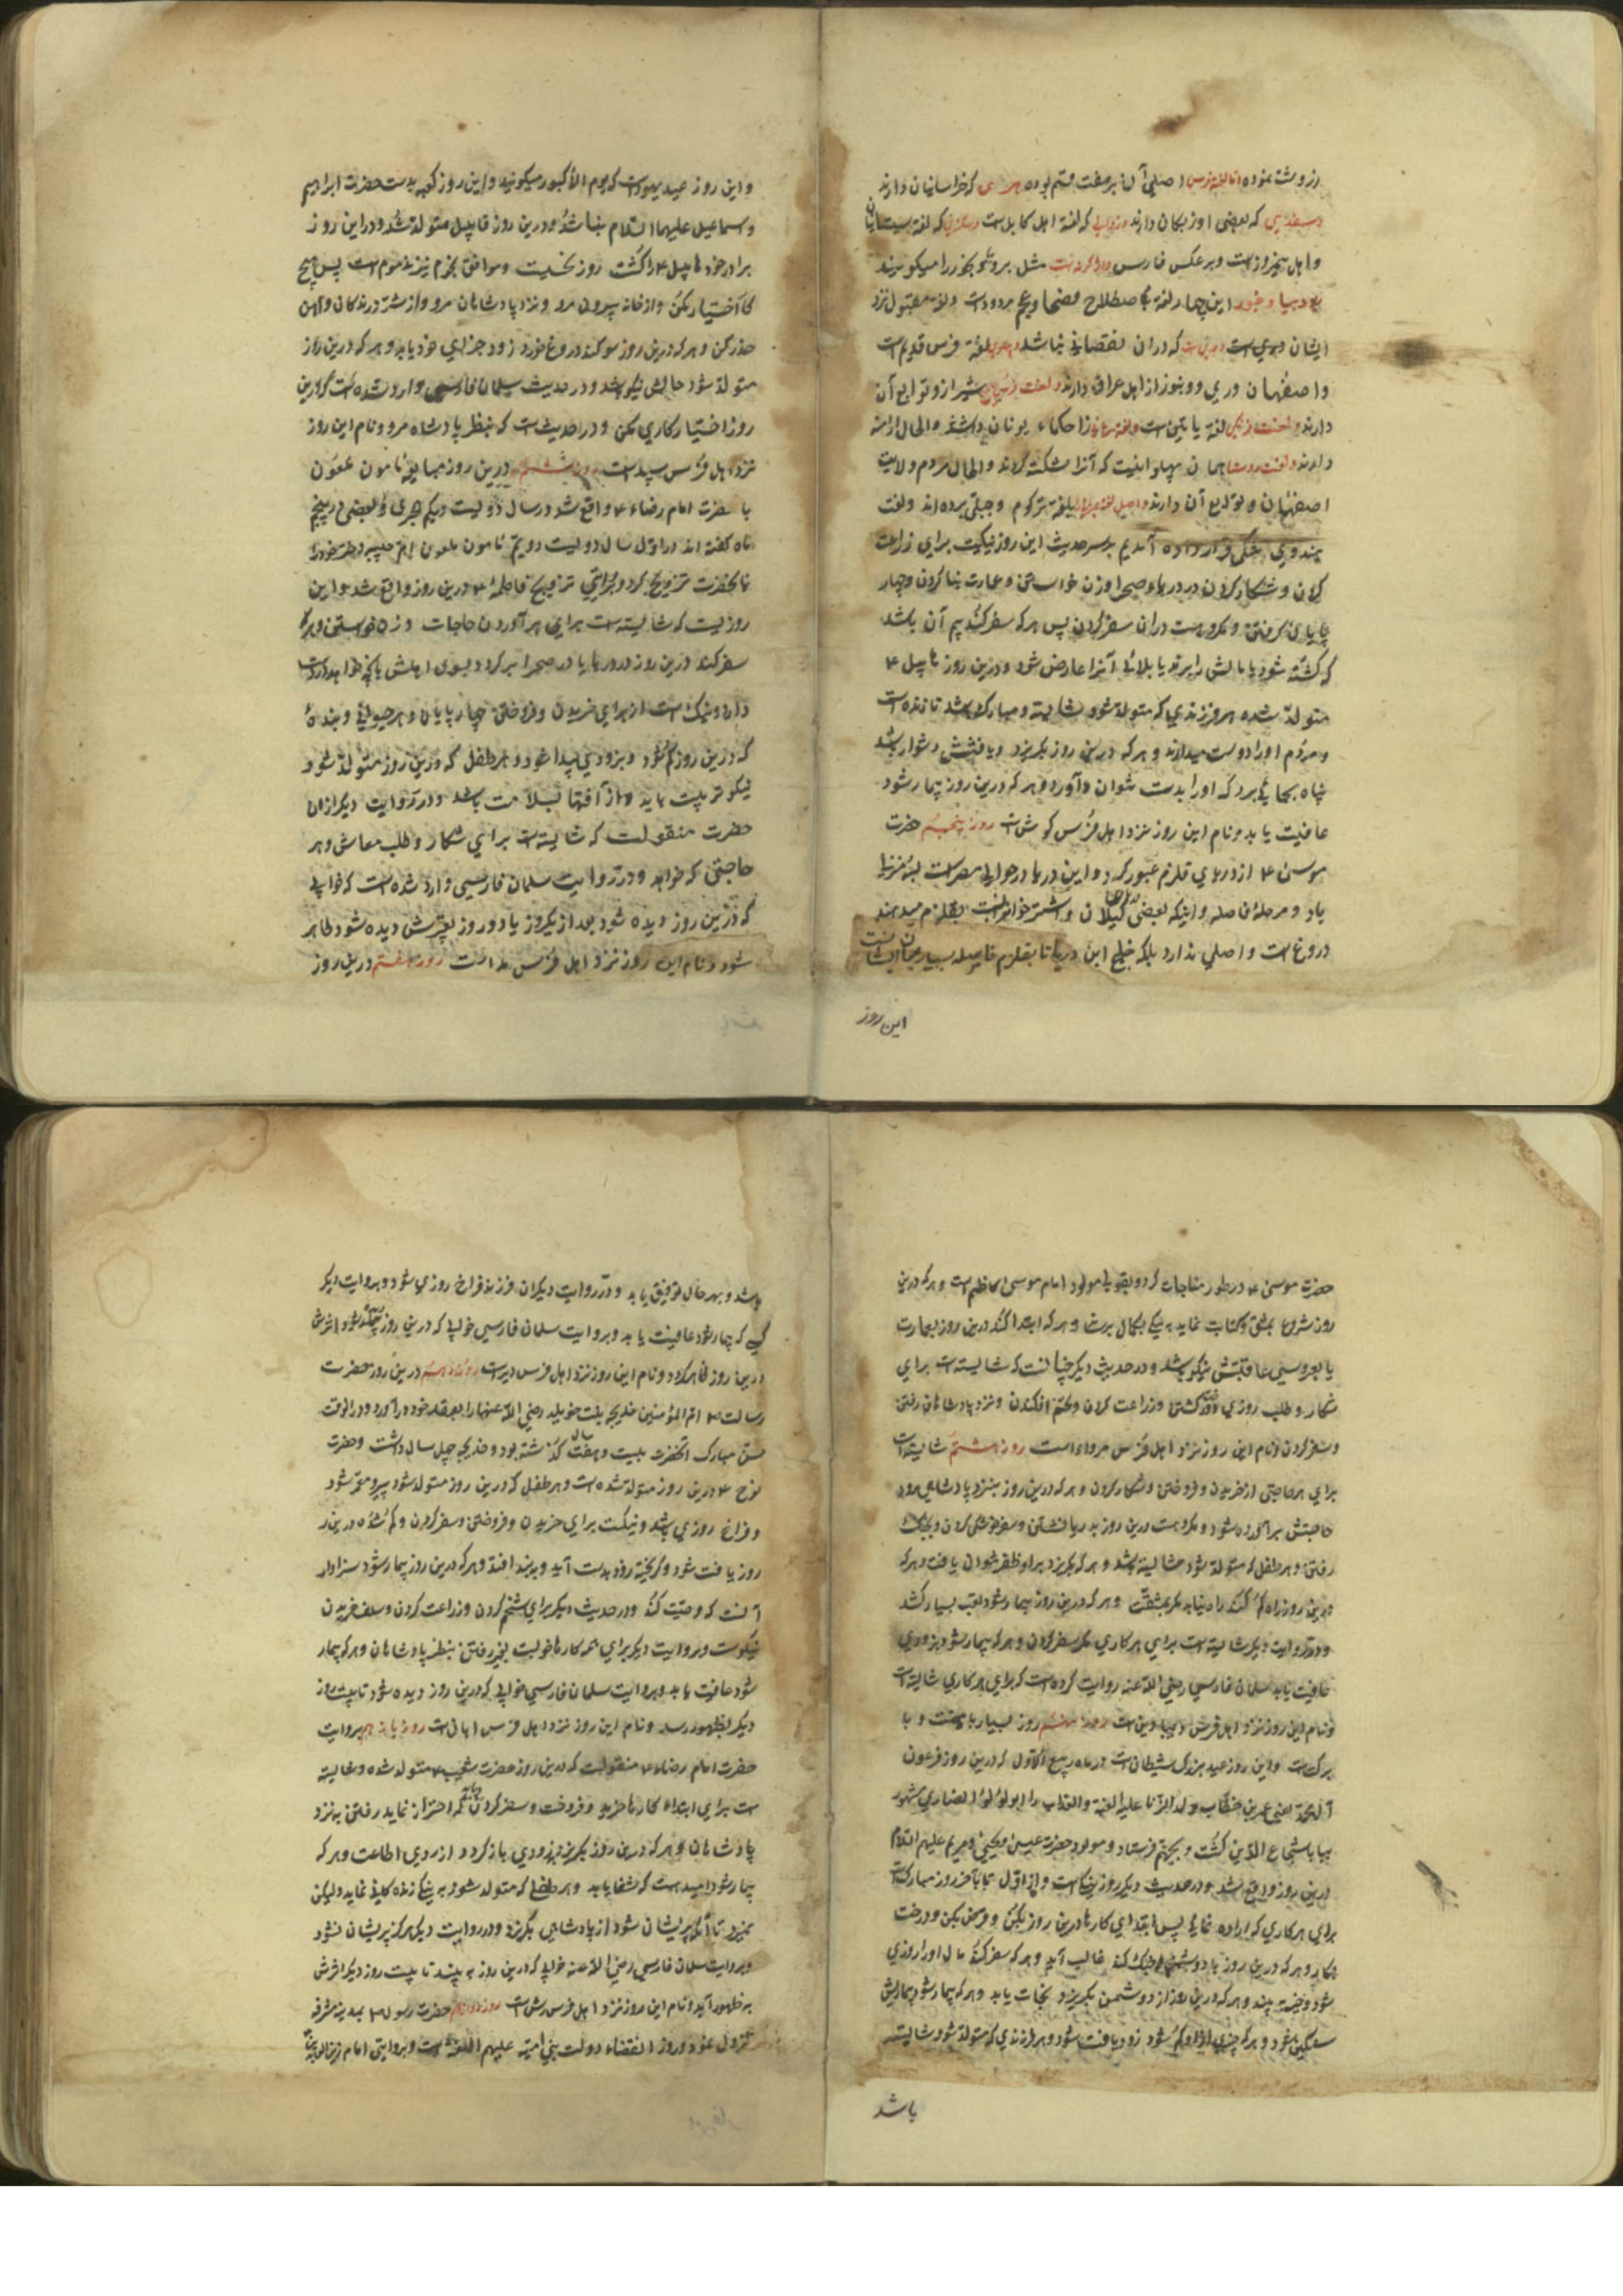 زروشته نموده اما لغة فرس اصلی آن بر هفت قسم بوده هروی که خراسانیان دارند
و سغدی که بعضی اوزبکان دارند و زاولی که لغة اهل کابل است و سکزی که لغة سیستانیان
و اهل نیمروز است و برعکس فارس مثل میکویند
این چهار لغة اصطلاح فصحا و عجم مردود است و لغة مقبول نزد
ایشان دری است که دران نقصانی نباشد و پهلوی لغة فرس قدیم است
و اصفهان و ری و دینور از اهل عراق دارند و لغت شیراز و توابع آن
دارند لغة حکماء یونان داشتند والحال ارامنه
دارند همان پهلوانیست که آنرا شکسته کرده‌اند والحال مردم ولایت
اصفهان و توابع آن دارند بلغة ترکوم و جبلی برده‌اند و لغت
هندوی جنگی قرار داده آمدیم بر سر حدیث این روز نیکیست برای زراعت
کردن و شکار کردن در دریا و صحرا و زن خواستن و عمارت بنا کردن و چهار
پایان گرفتن و مکروهست دران سفر کردن پس هر که سفر کند بیم آن باشد
که کشته شود یا مالش را برند یا بلائی آنرا عارض شود و درین روز هابیل ع
متولد شده هر فرزندی که متولد شود شایسته و مبارک باشد تا زنده است
و مردم او را دوست میدارند و هر که درین روز بگریزد و یافتنش دشوار باشد
پناه بجائی برد که او را بدست نتوان آورد و هر که درین روز بیمار شود
عافیت یابد و نام این روز نزد اهل فرس کوش است روز پنجم حضرت
موسی ع از دریای قلزم عبور کرد و این دریا در حوالی مصر است
یاد و مرحله فاصله و اینکه بعضی گیلان بقلزم میدهند
دروغ است و اصلی ندارد بلکه خلیج این دریا تا بقلزم فاصله بسیار
این روز
و این روز عید یهود است که یوم الاکبور میکویند و این روز کعبه بدست حضرت ابراهیم
و اسماعیل علیهما السلام بنا شد و درین روز قابیل متولد شد و در این روز
برادر خود هابیل را کشت روز نحسیست و موافق نجوم نیز مذموم است پس هیچ
کار اختیار مکن و از خانه بیرون مرو و نزد پادشاهان مرو و از شر درندگان و آهن
حذر کن و هر که درین روز سوکند دروغ خورد زود جزای خود یابد و هر که درین روز
متولد شود حالش نیکو باشد و در حدیث سلمان فارسی وارد شده است که درین
روز اختیار کاری مکن و در حدیث است که بنظر پادشاه مرو و نام این روز
نزد اهل فرس سپید است روز ششم درین روز مبایعه مامون ملعون
با حضرت امام رضا ع واقع شد در سال دویست و یکم هجری و بعضی در پنجم
ماه گفته‌اند در اول سال دویست دویم مامون ملعون ام حبیبه دختر خود را
بآنحضرت تزویج کرد و برایتی تزویج فاطمه ع درین روز واقع شد و این
روزیست که شایسته است برای برآوردن حاجات و زن خواستن و هر که
سفر کند درین روز در دریا یا در صحرا برگردد بسوی اهلش با آنچه خواهد دوست
دارد و نیک است از برای خریدن و فروختن چهارپایان و هر حیوانی و بنده
که درین روز گم شود و بزودی پیدا شود و هر طفل که درین روز متولد شود
نیکو تربیت یابد و از آفتها بسلامت باشد و در روایت دیگر از آن
حضرت منقولست که شایسته است برای شکار و طلب معاش و هر
حاجتی که خواهد و در روایت سلمان فارسی وارد شده است که خوابی
که درین روز دیده شود بعد از یکروز یا دو روز تعبیرش دیده شود ظاهر
شود و نام این روز نزد اهل فرس مداست روز هفتم درین روز
حضرت موسی ع در طور مناجات کرد و بقولی مولود امام موسی کاظم است و هر که درین
روز شروع بمشق و کتابت نماید به نیکی بکمال برساند و هر که ابتدا کند درین روز بعمارت
یا بعروسی عاقبتش نیکو باشد و در حدیث دیگر چنانست که شایسته است برای
شکار و طلب روزی و درخت کشتن و زراعت کردن و تخم افکندن و نزد پادشاهان رفتن
و سفر کردن و نام این روز نزد اهل فرس مرداد است روز هشتم شایسته است
برای هر حاجتی از خریدن و فروختن و شکار کردن و هر که درین روز بنزد پادشاهی رود
حاجتش برآورده شود و مکروهست درین روز بدریا نشستن و سفر خشکی کردن و بجنک
رفتن و هر طفل که متولد شود شایسته باشد و هر که بگریزد بر او ظفر نتوان یافت و هر که
درین روز راه گم کند راه نیابد مگر بمشقت و هر که درین روز بیمار شود تعب بسیار کشد
و در روایت دیگر شایسته است برای هر کاری مگر سفر کردن و هر که بیمار شود بزودی
عافیت یابد سلمان فارسی رضی الله عنه روایت کرده است که برای هر کاری شایسته است
و نام این روز نزد اهل فرس دیبادین است روز نهم روز بسیار با میمنت و با
برکت است و این روز عید بزرگ شیطان است در ماه ربیع الاول که درین روز فرعون
آل محمد یعنی عمر بن خطاب ولد الزنا علیه اللعنة والعذاب را ابولؤلؤ انصاری مشهور
ببابا شجاع الدین کشت و بجهنم فرستاد و مولود حضرت عیسی و یحیی و مریم علیهم السلام
درین روز واقع شد و در حدیث دیگر روز نیکیست و از اول تا بآخر روز مبارک است
برای هر کاری که اراده نمائی پس ابتدای کارها درین روز بکن و قرض بکن و درخت
بکار و هر که درین روز با دشمنی جنک کند غالب آید و هر که سفر کند مال او را روزی
شود و خیر به بیند و هر که درین روز از دشمن بگریزد نجات یابد و هر که بیمار شود بیماریش
سنگین شود و هر که چیزی از او گم شود زود یافت شود و هر فرزندی که متولد شود شایسته
باشد
باشد و بهر حال توفیق یابد و در روایت دیگران فرزند فراخ روزی شود و بروایت دیگر
کسی که بیمار شود عافیت یابد و بروایت سلمان فارسی خوابی که درین روز دیده شود اثرش
درین روز ظاهر گردد و نام این روز نزد اهل فرس دیر است روز دهم درین روز حضرت
رسالت ص ام المؤمنین خدیجه بنت خویلد رضی الله عنها را بعقد خود در آورد و در آنوقت
سن مبارک آنحضرت بیست و هفت سال گذشته بود و خدیجه چهل سال داشت و حضرت
نوح ع درین روز متولد شده است و هر طفل که درین روز متولد شود پیر و معمر شود
و فراخ روزی باشد و نیکست برای خریدن و فروختن و سفر کردن و گم شده درین
روز یافت شود و گریخته زود بدست آید و ببند افتد و هر که درین روز بیمار شود سزاوار
آنست که وصیت کند و در حدیث دیگر برای شخم کردن و زراعت کردن و سلف خریدن
نیکوست و بروایت دیگر برای همه کارها خوبست بجز رفتن بنظر پادشاهان و هر که بیمار
شود عافیت یابد و بروایت سلمان فارسی خوابی که درین روز دیده شود تا بیست روز
دیگر بظهور رسد و نام این روز نزد اهل فرس ابان است روز یازدهم بروایت
حضرت امام رضا ع منقولست که درین روز حضرت شعیب ع متولد شده و شایسته
است برای ابتداء کارها خرید و فروخت و سفر کردن بلکه احتراز نماید رفتن به نزد
پادشاهان و هر که درین روز بگریزد بزودی باز گردد از روی اطاعت و هر که
بیمار شود امید هست که شفا یابد و هر طفلی که متولد شود به نیکی زندگانی نماید و لیکن
نمیرد تا آنکه پریشان شود از پادشاهی بگریزد و در روایت دیگر هرگز پریشان نشود
و بروایت سلمان فارسی رضی الله عنه خوابی که درین روز به بیند تا بیست روز دیگر اثرش
به ظهور آید و نام این روز نزد اهل فرس رش است روز دوازدهم حضرت رسول ص بمدینه مشرفه
نزول نمود و روز انقضاء دولت بنی امیه علیهم اللعنة است و بروایتی امام زین العابدین